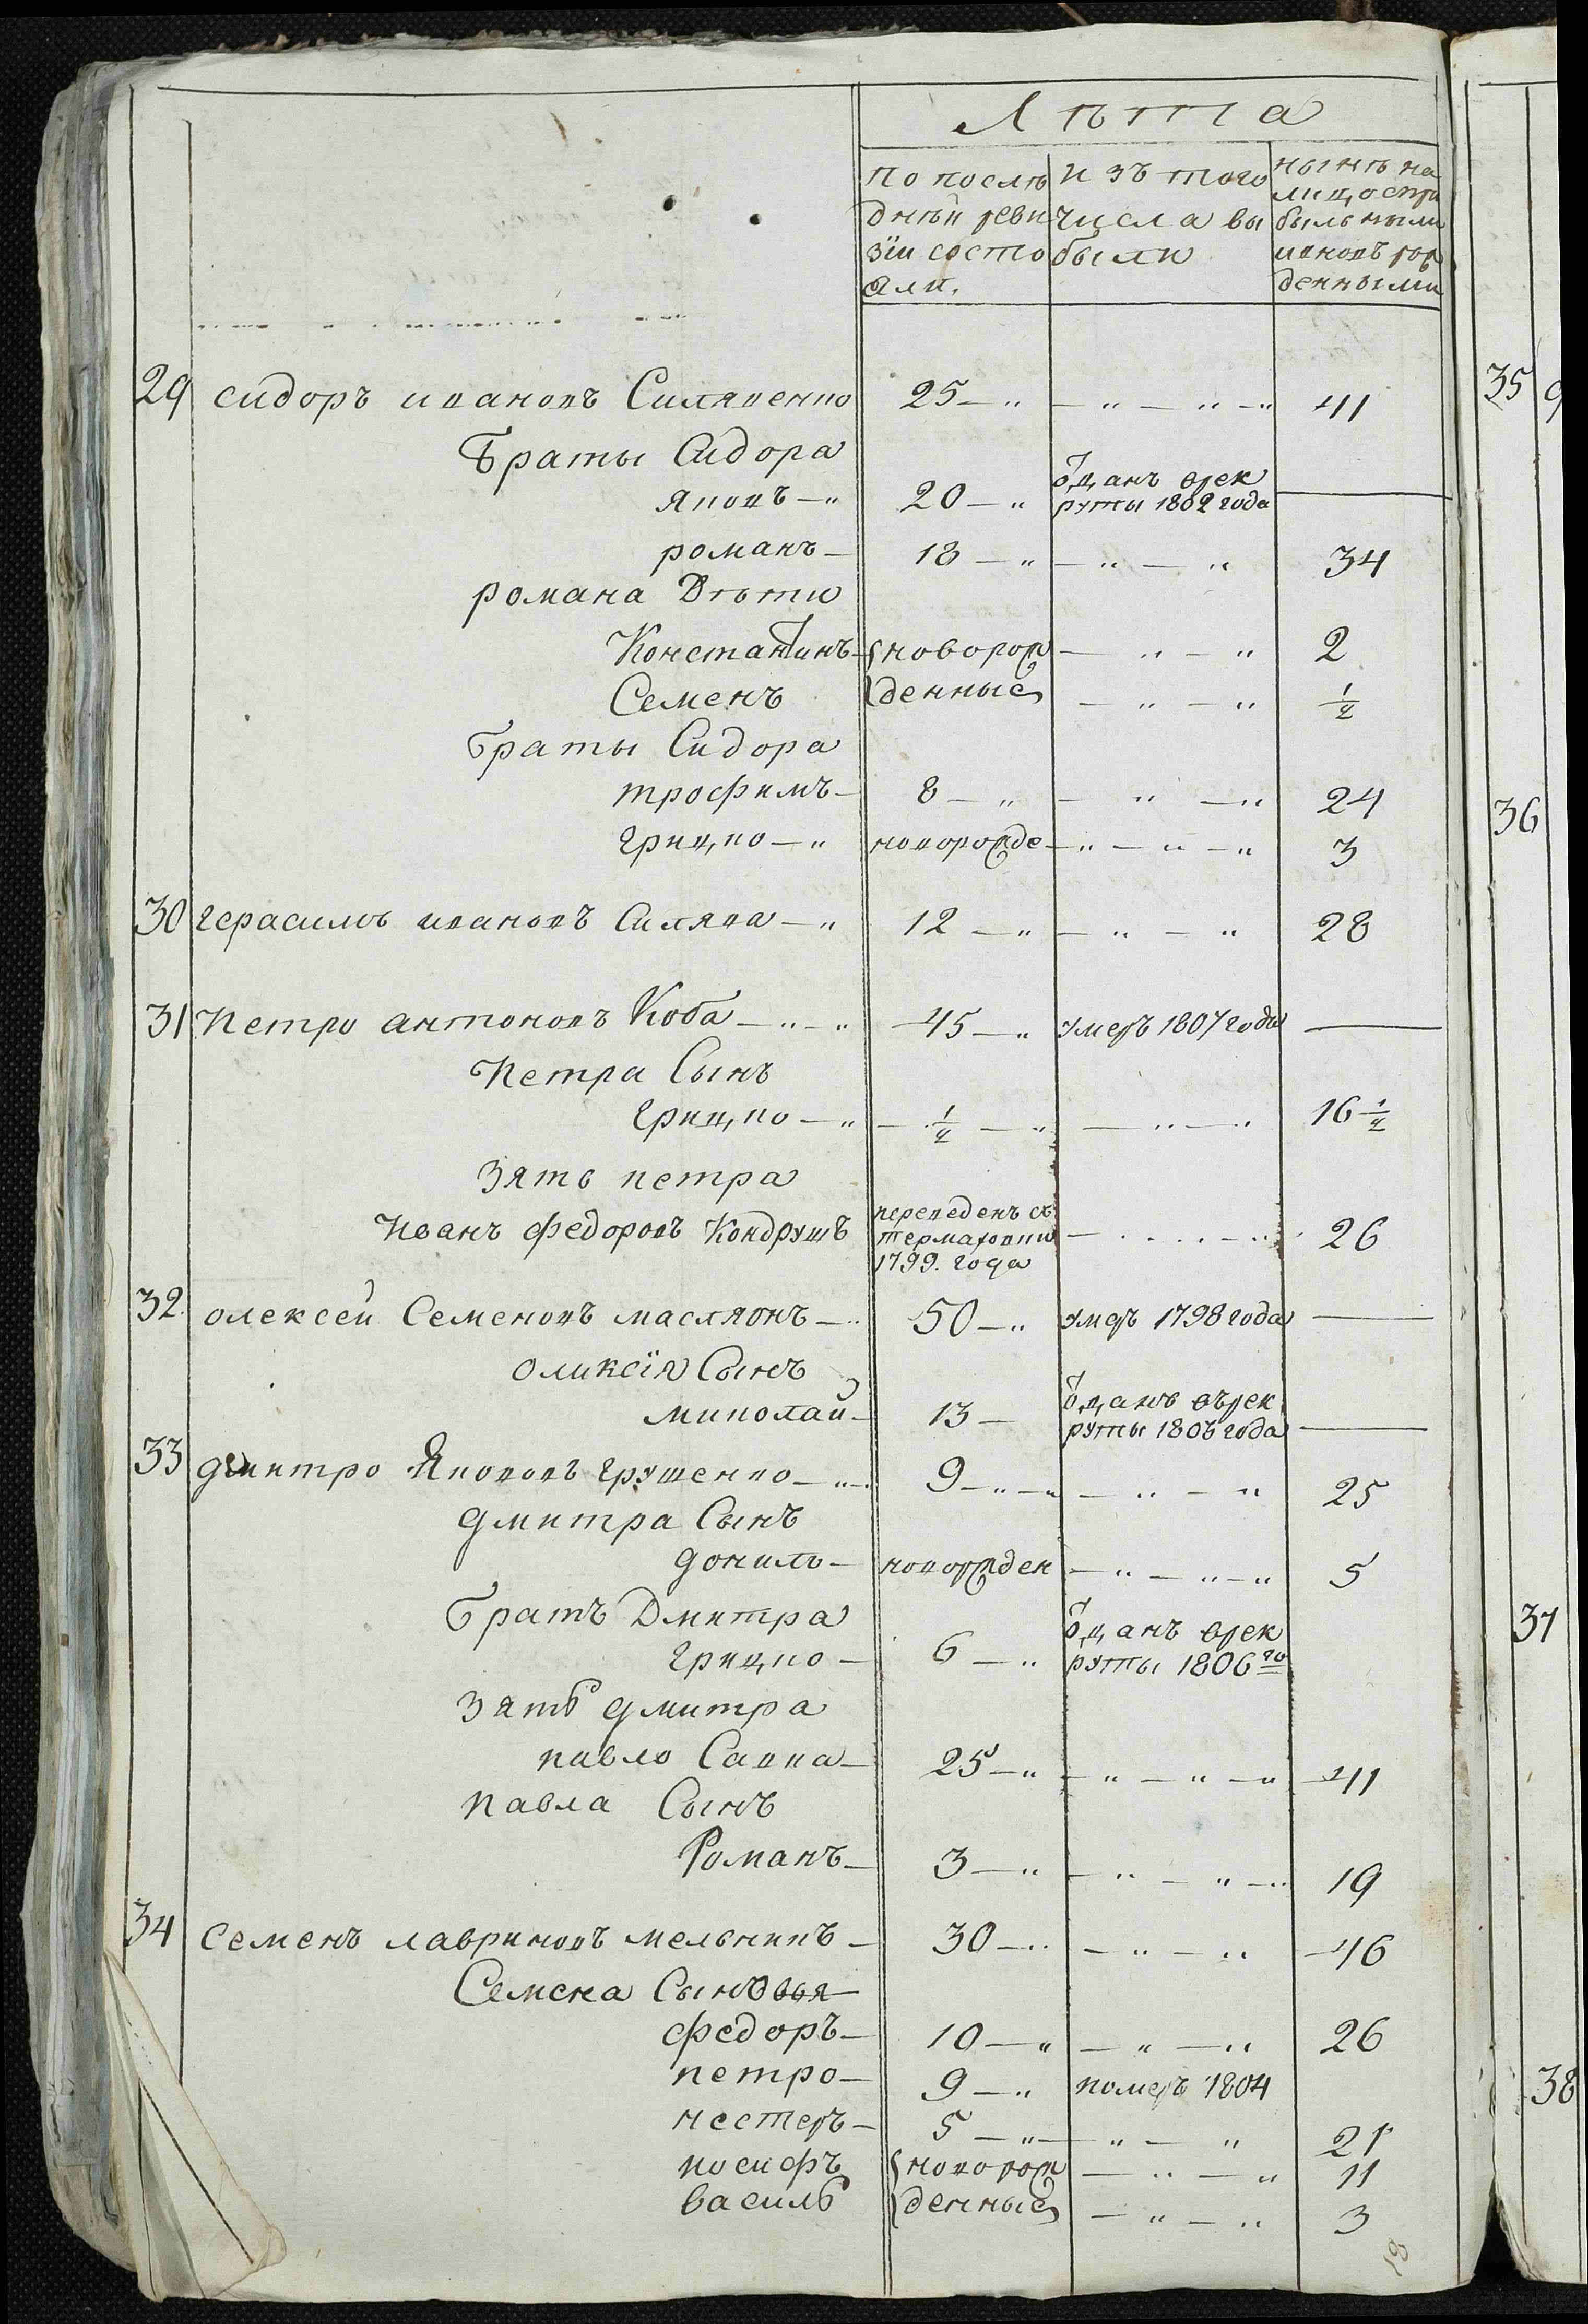 Лѣта
по послѣ
днѣй реви
зіи состо
яли.
изъ того
числа вы
были
нынѣ на
лицо спри
былыми
и новорож
денными
29 Сидоръ Ивановъ Силявенко 25 — 41
Браты Сидора
Яковъ 20 отданъ врек
руты 1802 года —
романъ 18 — 34
романа Дѣти
Константинъ новорож — 2
Семенъ денные — ½
Браты Сидора
трофимъ 8 — 24
грицко новорожде — 3
30 герасимъ ивановъ Силява 12 — 28
31 Петро антоновъ Коба 45 умеръ 1807 года —
Петра Сынъ
грицко ½ — 16 ½
Зять петра
Иванъ федоровъ Кондрушъ
переведенъ съ
1799. года — 26
32 олексей Семеновъ 50 умеръ 1798 года —
Оликсія Сынъ
миколай 13 отданъ върек
руты 1806 года —
33 дмитро Якововъ грушенко 9 — 25
дмитра Сынъ
данило новорожден — 5
Братъ Дмитра
грицко 6 отданъ врек
руты 1806 го
Зять дмитра
павло Савка 25 — 41
Павла Сынъ
Романъ 3 — 19
34 Семенъ лавриновъ мельникъ 30 — 46
Семена Сыновья
федоръ 10 — 26
петро 9 померъ 1804
нестеръ 5 — 21
иосифъ новорож — 11
василь денные — 3
35
36
37
38